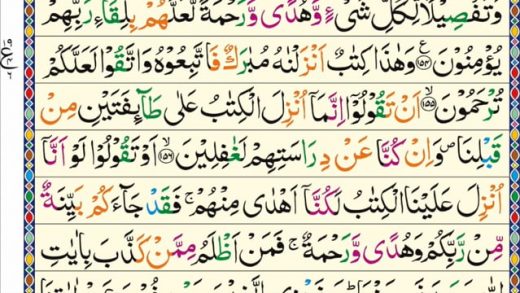 وَتَفْصِيْلًا لِّكُلِّ شَيْءٍ وَّهُدًى وَّرَحْمَةً لَّعَلَّهُمْ بِلِقَآءِ رَبِّهِمْ
يُؤْمِنُوْنَ ﴿۱۵۴﴾ ع وَهٰذَا كِتٰبٌ اَنْزَلْنٰهُ مُبٰرَكٌ فَاتَّبِعُوْهُ وَاتَّقُوْا لَعَلَّكُمْ
تُرْحَمُوْنَ ﴿۱۵۵﴾ اَنْ تَقُوْلُوْۤا اِنَّمَاۤ اُنْزِلَ الْكِتٰبُ عَلٰى طَآئِفَتَيْنِ مِنْ
قَبْلِنَا ۪ وَاِنْ كُنَّا عَنْ دِرَاسَتِهِمْ لَغٰفِلِيْنَ ﴿۱۵۶﴾ اَوْ تَقُوْلُوْا لَوْ اَنَّاۤ
اُنْزِلَ عَلَيْنَا الْكِتٰبُ لَكُنَّاۤ اَهْدٰى مِنْهُمْ ۚ فَقَدْ جَآءَكُمْ بَيِّنَةٌ
مِّنْ رَّبِّكُمْ وَهُدًى وَّرَحْمَةٌ ۚ فَمَنْ اَظْلَمُ مِمَّنْ كَذَّبَ بِاٰيٰتِ